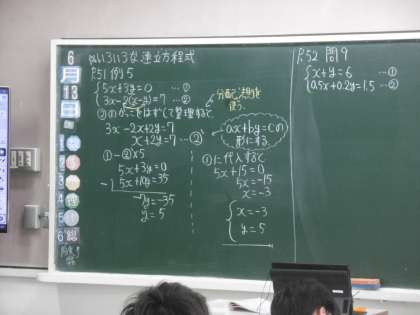 6
月
13
日
いろいろな連立方程式
P.51 例5
5x+3y=0 …①
3x-2(x-y)=7 …②
分配法則を
使う。
②のかっこをはずして整理すると
3x-2x+2y=7
x+2y=7 …②'
ax+by=cの
形にする
①-②'×5
5x+3y=0
-) 5x+10y=35
-7y=-35
y=5
①に代入すると
5x+15=0
5x=-15
x=-3
x=-3
y=5
P.52 問9
x+y=6 …①
0.5x+0.2y=1.5 …②
1
2
3
4
5
6